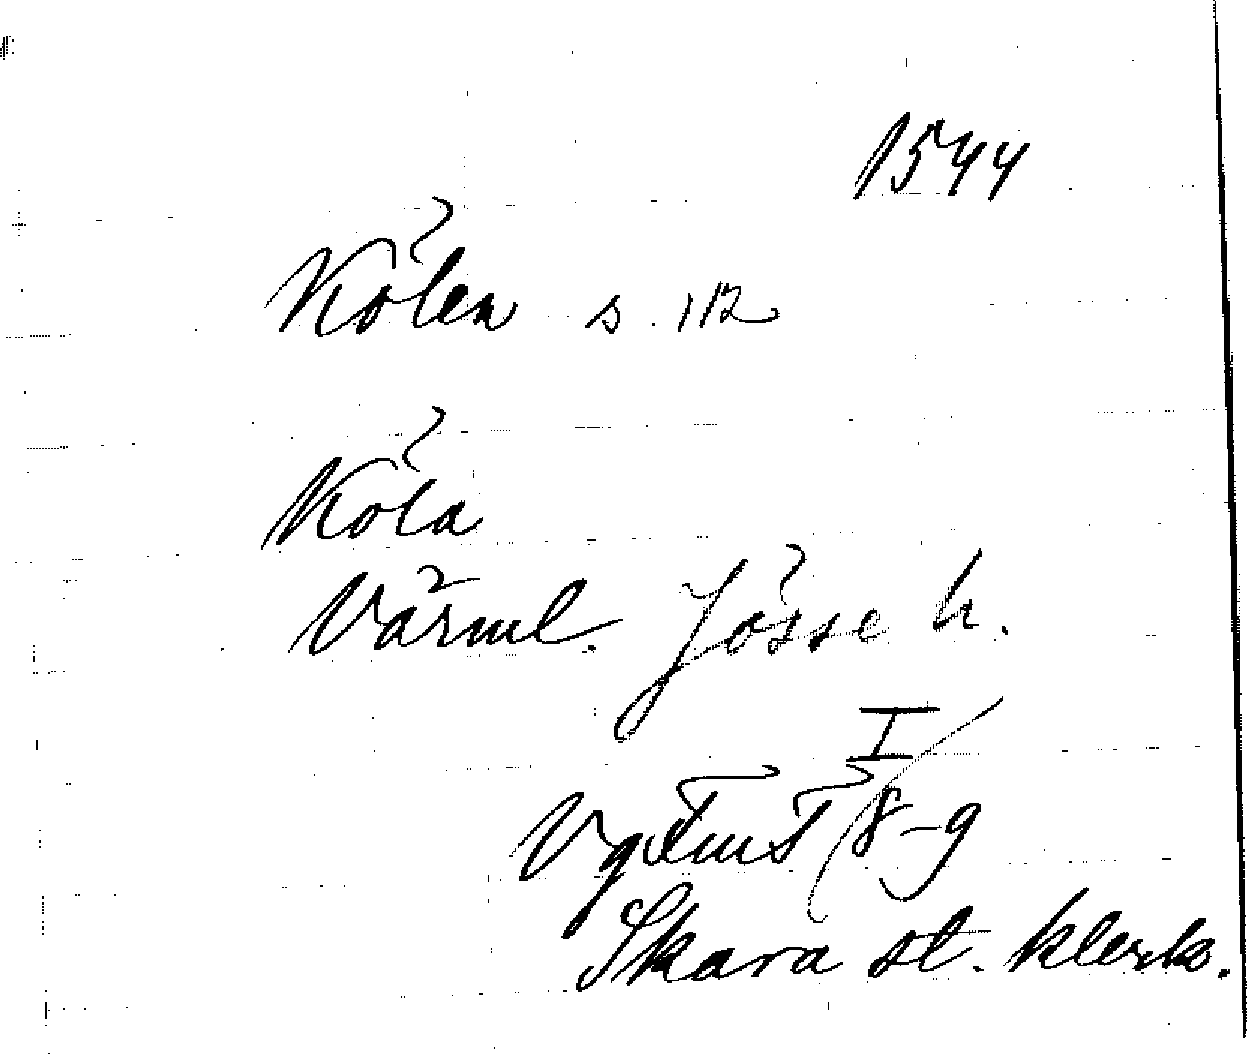 1544
Kölen s. 112
Köla
Värml. Jösse h.
I
VgFmT 8-9
Skara st. klerk.